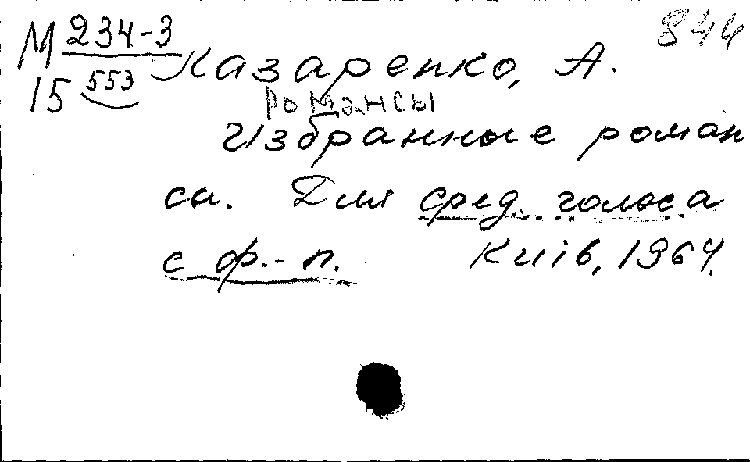 М 234-3 844
15 553
Казаренко, А.
романсы
Избранные роман
сы. Для сред. голоса
с ф.-п. Київ, 1964.